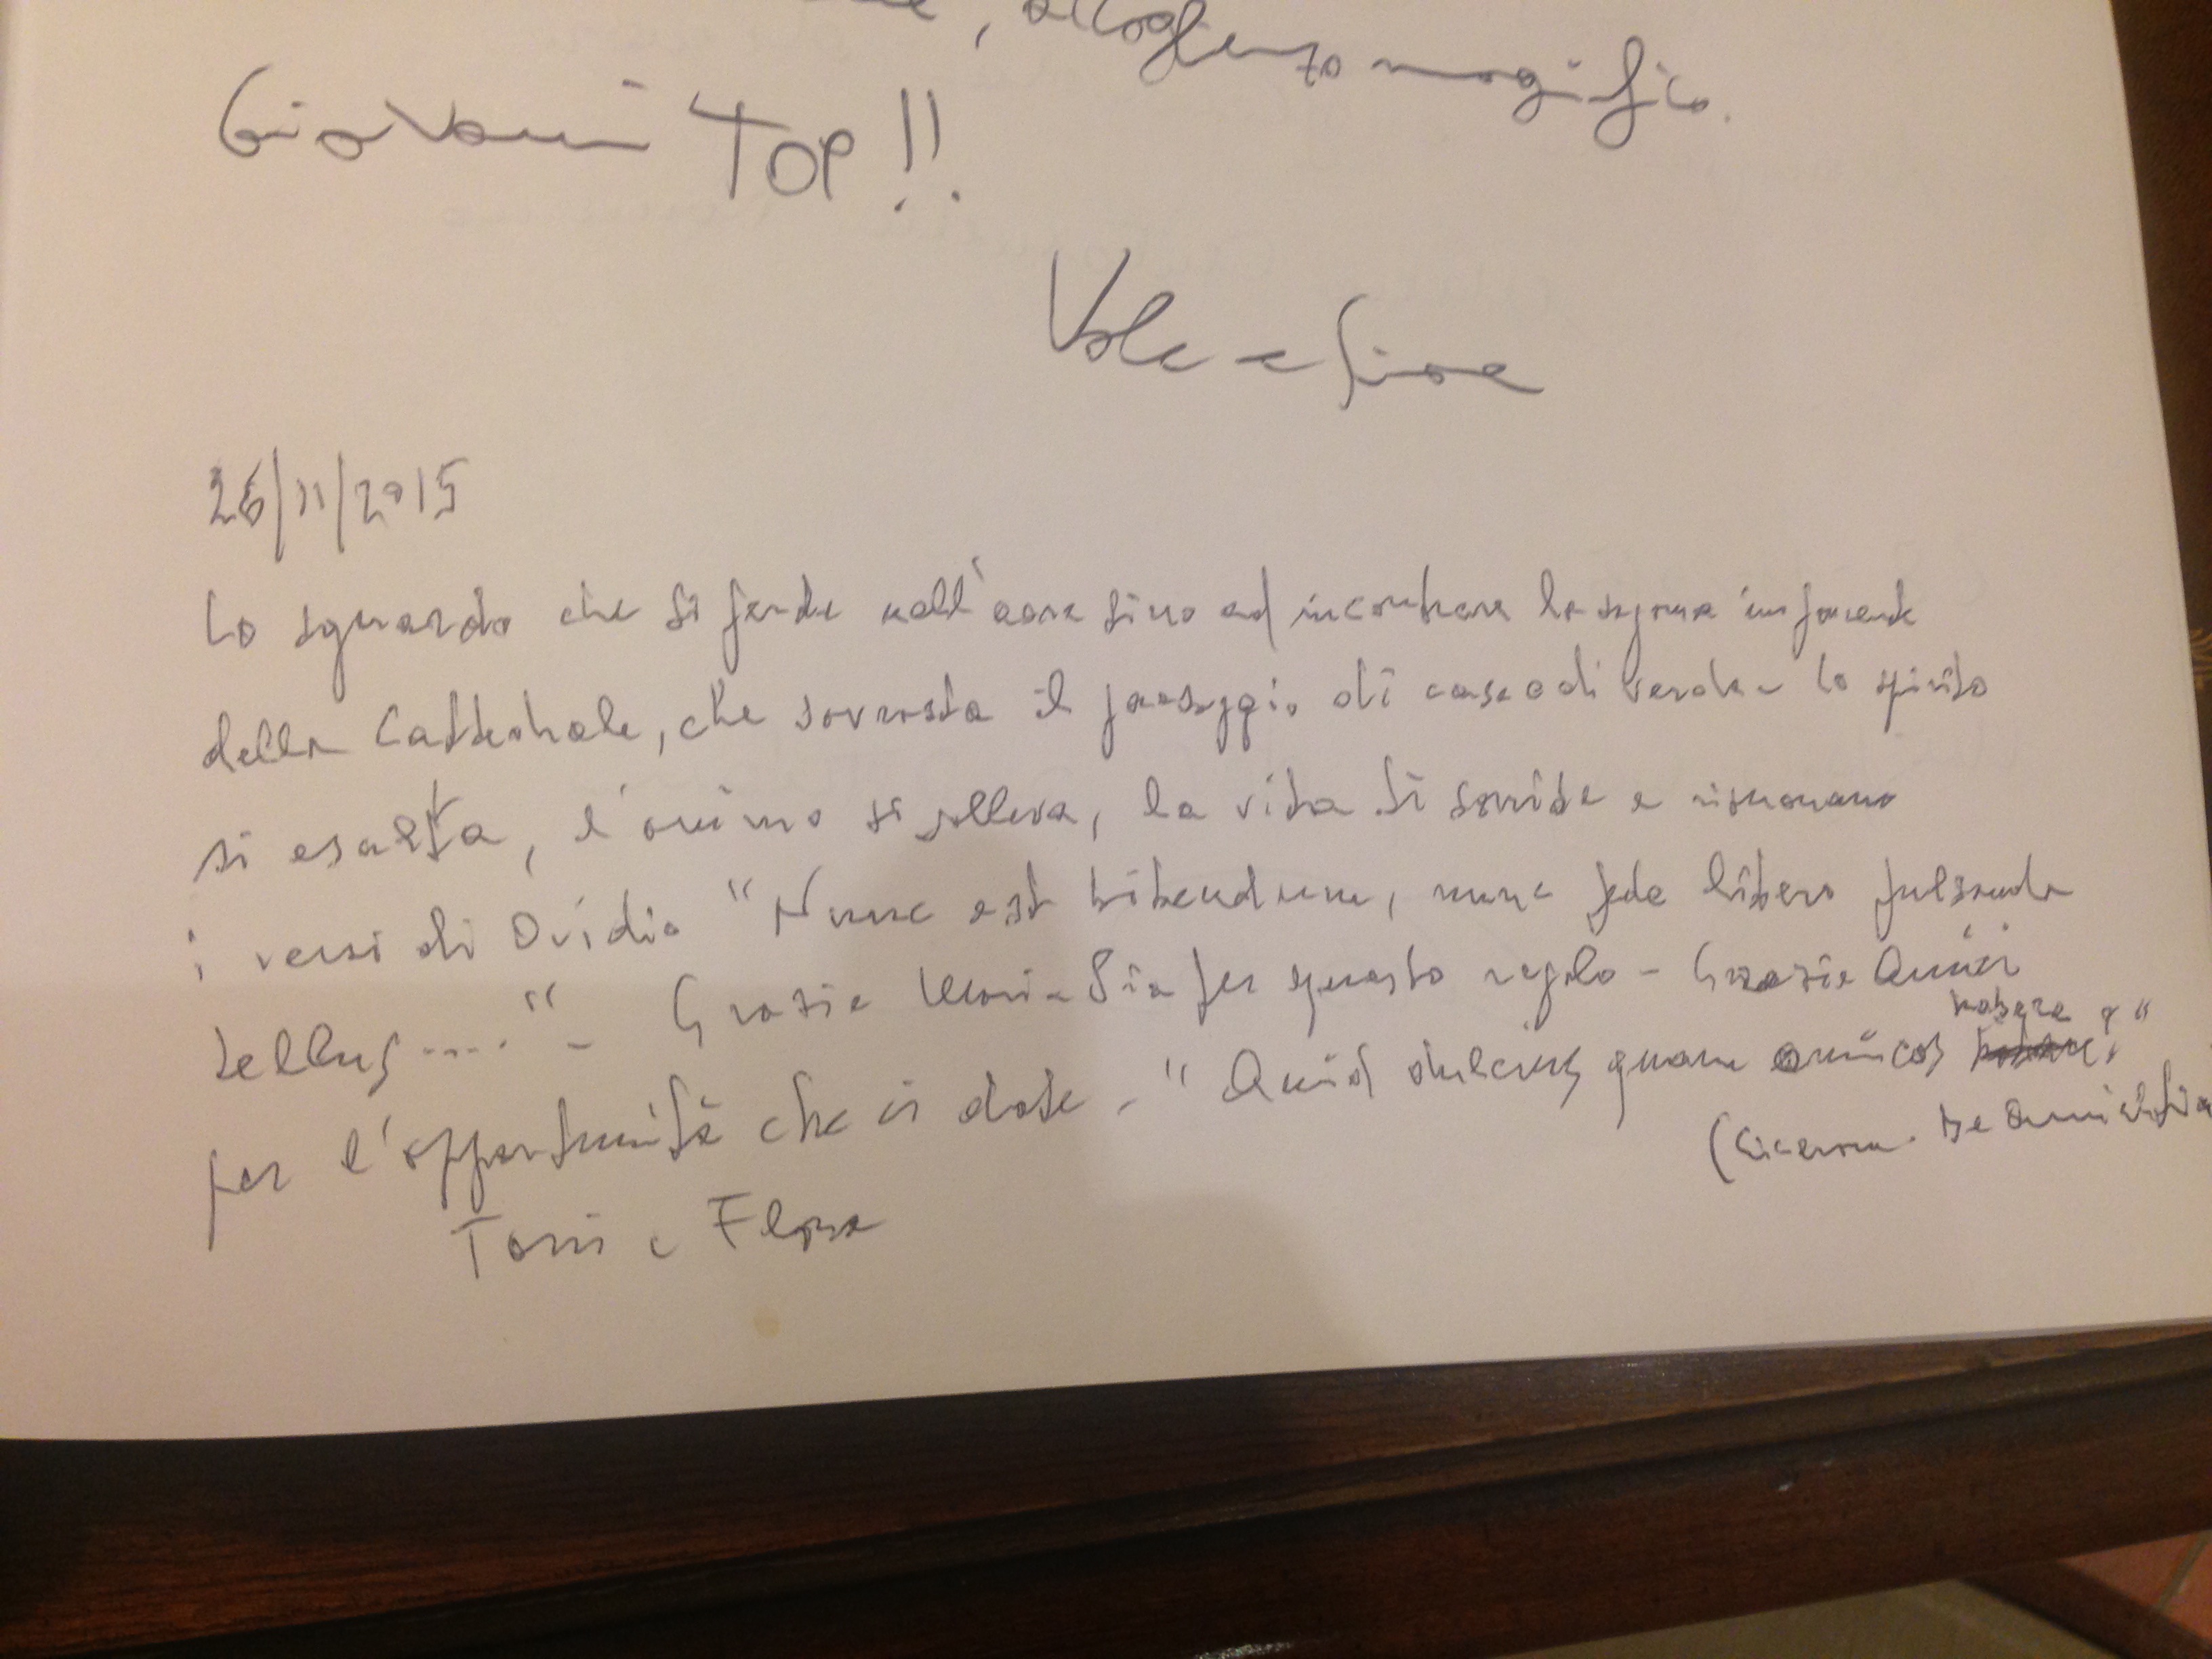 , accoglienza magnifica.
Giovanni TOP!!
Vale e
26/11/2015
Lo sguardo che si perde nell'aere sino ad incontrare la sagoma imponente
della Cattedrale, che sovrasta il paesaggio di case e di verde - lo spirito
si esalta, l'animo si solleva, la vita ti sorride e risuonano
i versi di Ovidio "Nunc est bibendum, nunc pede libero pulsanda
tellus ....." - Grazie Maria Pia per questo regalo - Grazie Amici
per l'opportunità che ci date - "Quid dulcius quam amicos habere?"
(Cicerone - De Amicitia
Toni e Flora